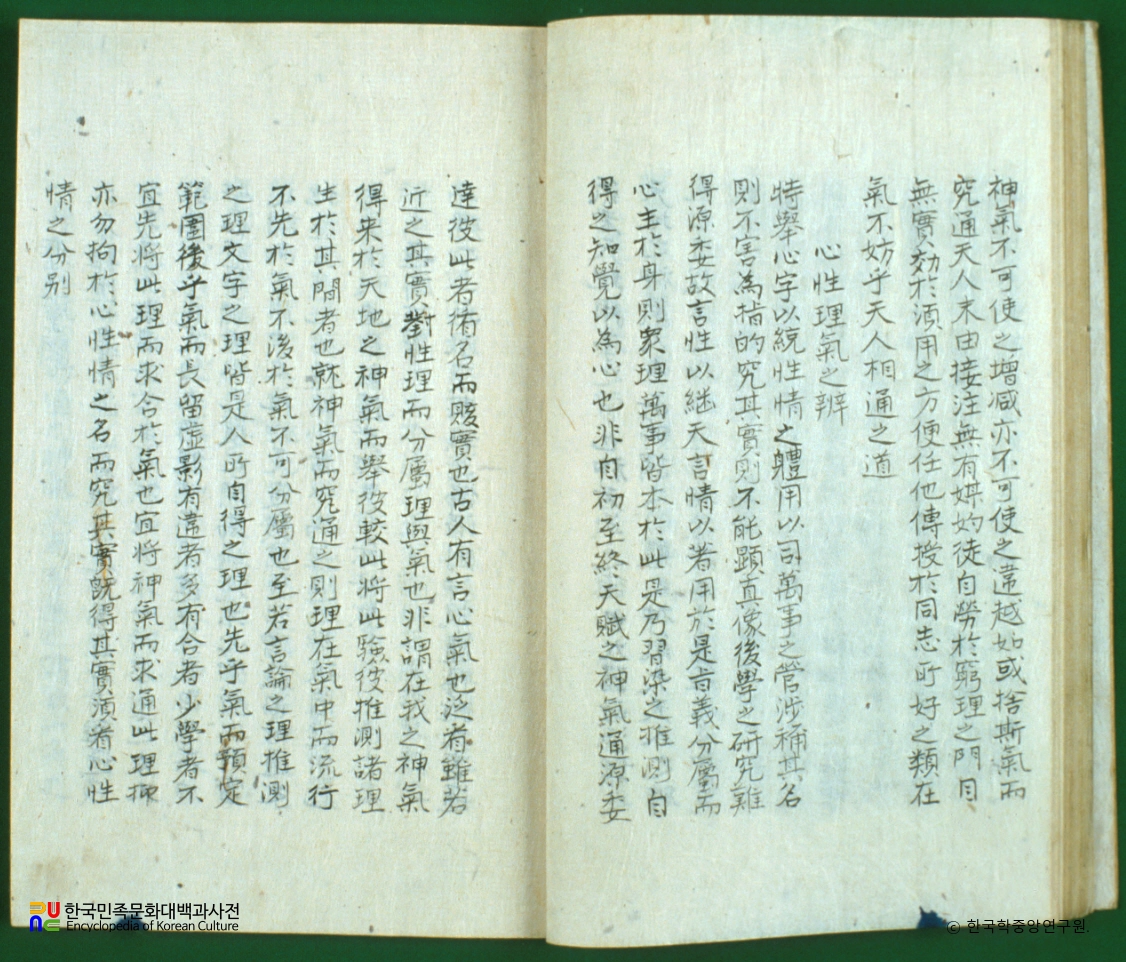 神氣不可使之增減亦不可使之違越如或捨斯氣而
究通天人末由接注無有媒妁徒自勞於窮理之門目
無實効於須用之方便任他傳授於同志所好之類在
氣不妨乎天人相通之道
心性理氣之辨
特舉心字以統性情之軆用以司萬事之管涉稱其名
則不害為指的究其實則不能顯真像後學之研究難
得源委故言性以継天言情以著用於是旨義分屬而
心主於身則衆理萬事皆本於此是乃習染之推測自
得之知覺以為心也非自初至終天賦之神氣通源委
達彼此者循名而賅實也古人有言心氣也泛看雖若
近之其實對性理而分属理與氣也非謂在我之神氣
得来於天地之神氣而舉彼較此将此驗彼推測諸理
生於其間者也就神氣而究通之則理在氣中而流行
不先於氣不後於氣不可分属也至若言論之理推測
之理文字之理皆是人所自得之理也先乎氣而預定
範圍後乎氣而長留虚影有違者多有合者少學者不
宜先将此理而求合於氣也宜将神氣而求通此理抑
亦勿拘於心性情之名而究其實旣得其實須看心性
情之分别
한국민족문화대백과사전
Encyclopedia of Korean Culture
© 한국학중앙연구원.